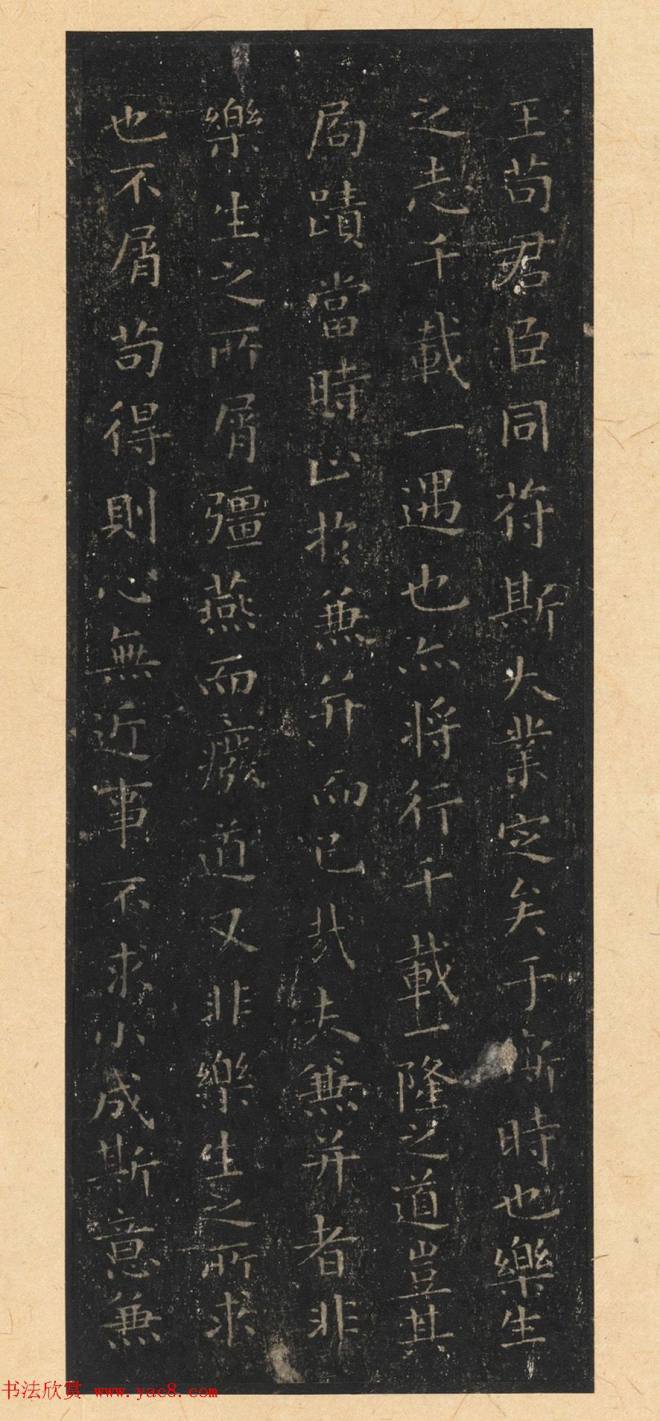 王苟君臣同符斯大業定矣于斯時也樂生
之志千載一遇也亦將行千載一隆之道豈其
局蹟當時止於兼并而已哉夫兼并者非
樂生之所屑彊燕而癈道又非樂生之所求
也不屑苟得則心無近事不求小成斯意兼
书法欣赏 www.yac8.com